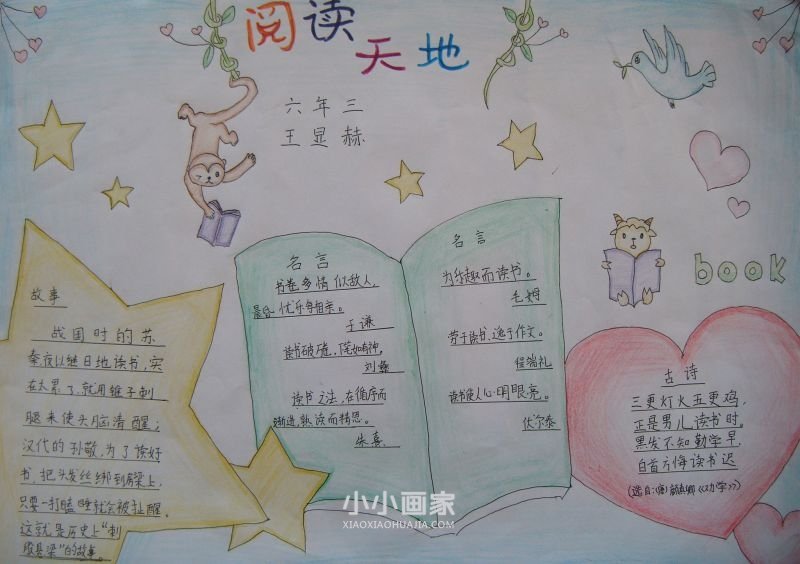 阅读
天地
六年三
王显赫
故事
战国时的苏
秦夜以继日地读书,实
在太累了,就用锥子刺
腿来使头脑清醒;
汉代的孙敬,为了读好
书,把头发丝绑到房梁上,
只要一打瞌睡就会被扯醒。
这就是历史上“刺
股悬梁”的故事。
名言
书卷多情似故人,
晨昏忧乐每相亲。
于谦
读书破万卷,下笔如有神。
刘彝
读书之法,在循序而
渐进,熟读而精思。
朱熹
名言
为乐趣而读书。
毛姆
劳于读书,逸于作文。
程端礼
读书使人心明眼亮。
伏尔泰
book
古诗
三更灯火五更鸡,
正是男儿读书时。
黑发不知勤学早,
白首方悔读书迟
(选自:(唐)颜真卿《劝学》)
小小画家
XIAOXIAOHUAJIA.COM